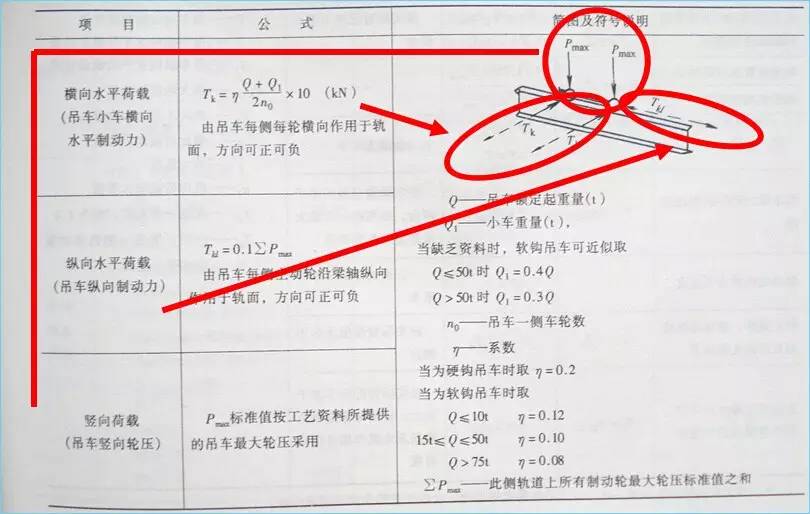 项 目
公 式
简图及符号说明
横向水平荷载
(吊车小车横向
水平制动力)
T_k = η (Q + Q_1)/(2n_0) ×10 (kN)
由吊车每侧每轮横向作用于轨
面，方向可正可负
P_max
P_max
T_k
T_kl
纵向水平荷载
(吊车纵向制动力)
T_kl = 0.1∑P_max
由吊车每侧主动轮沿梁轴纵向
作用于轨面，方向可正可负
竖向荷载
(吊车竖向轮压)
P_max标准值按工艺资料所提供
的吊车最大轮压采用
Q——吊车额定起重量(t)
Q_1——小车重量(t)，
当缺乏资料时，软钩吊车可近似取
Q≤50t 时 Q_1=0.4Q
Q>50t 时 Q_1=0.3Q
n_0——吊车一侧车轮数
η——系数
当为硬钩吊车时取 η=0.2
当为软钩吊车时取
Q≤10t η=0.12
15t≤Q≤50t η=0.10
Q>75t η=0.08
∑P_max——此侧轨道上所有制动轮最大轮压标准值之和